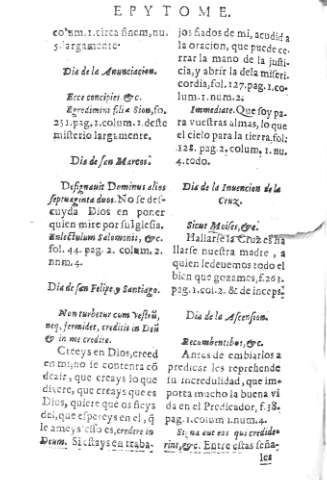 EPYTOME.
colum. 1. circa finem, nu.
5. largamente.
Dia de la Anunciacion.
Ecce concipies &c.
Egredimini filiæ Sion, fo.
251. pag. 1. colum. 1. deste
misterio largamente.
Dia de san Marcos.
Designauit Dominus alios
septuaginta duos. No se des-
cuyda Dios en poner
quien mire por su Iglesia.
En lectulum Salomonis, &c.
fol. 44. pag. 2. colum. 2.
num. 4.
Dia de san Felipe, y Santiago.
Non turbetur cor vestrū,
neq; formidet, creditis in Deū
& in me credite.
Creeys en Dios, creed
en mi, no se contenta cō
dezir, que creays lo que
dize, que creays que es
Dios, quiere que os fieys
del, que espereys en el, q̄
le ameys esso es, credere in
Deum. Si estays en traba-
jos fiados de mi, acudid a
la oracion, que puede ce-
rrar la mano de la justi-
cia, y abrir la dela miseri
cordia, fol. 127. pag. 1. co-
lum. 1. num. 2.
Immediate. Que soy pa-
ra vuestras almas, lo que
el cielo para la tierra, fol:
128. pag. 2. colum. 1. nu.
4. todo.
Dia de la Inuencion de la
Cruz.
Sicut Moises, &c.
Hallarse la Cruz es ha
llarse nuestra madre, a
quien le deuemos todo el
bien que gozamos, f. 263.
pag. 1. col. 2. & deinceps.
Dia de la Ascension.
Recumbentibus, &c.
Antes de embiarlos a
predicar les reprehende
su incredulidad, que im-
porta mucho la buena vi
da en el Predicador, f. 38.
pag. 1. colum 1. num. 4.
Signa aut eos qui credide-
rint, &c. Entre estas seña-
les